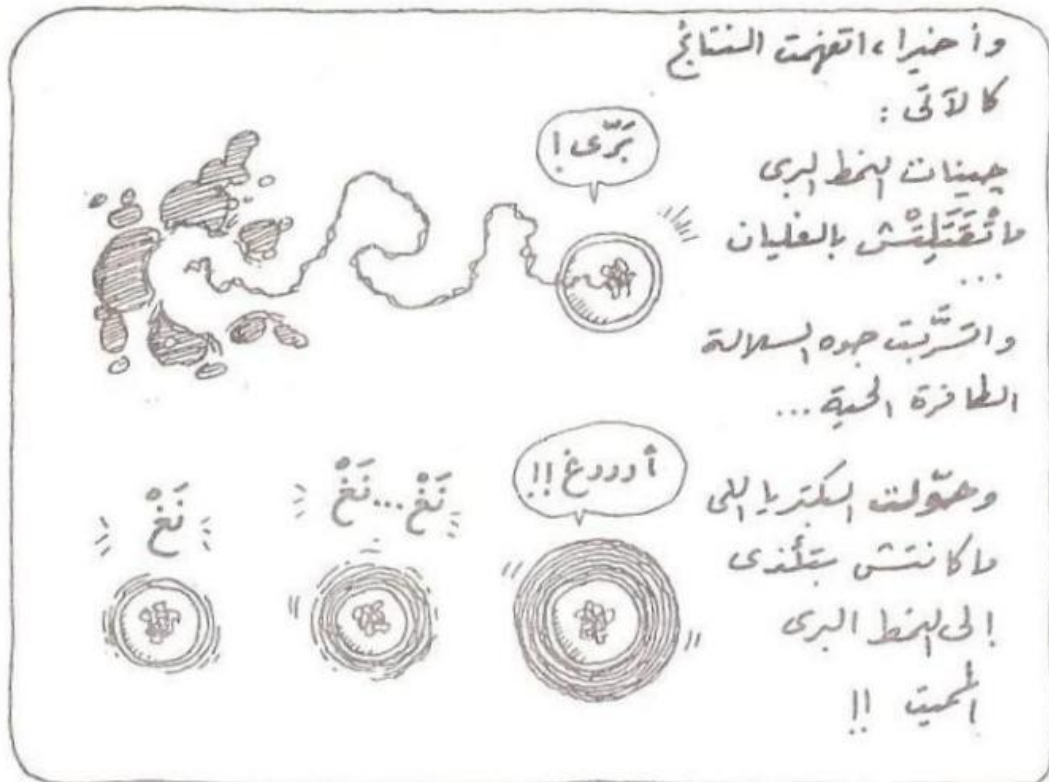 وأخيرا، اتفهمت النتائج
كالآتى :
چينات النمط البرى
ماتْقَتَلِتْش بالغليان
...
واتسرَّبت جوه السلالة
الطافرة الحية...
وحوّلت البكتريا اللى
ماكانتش بتأذى
إلى النمط البرى
المميت !!
بَرّى !
أدددغ !!
نَغْ...نَغْ
نَغْ